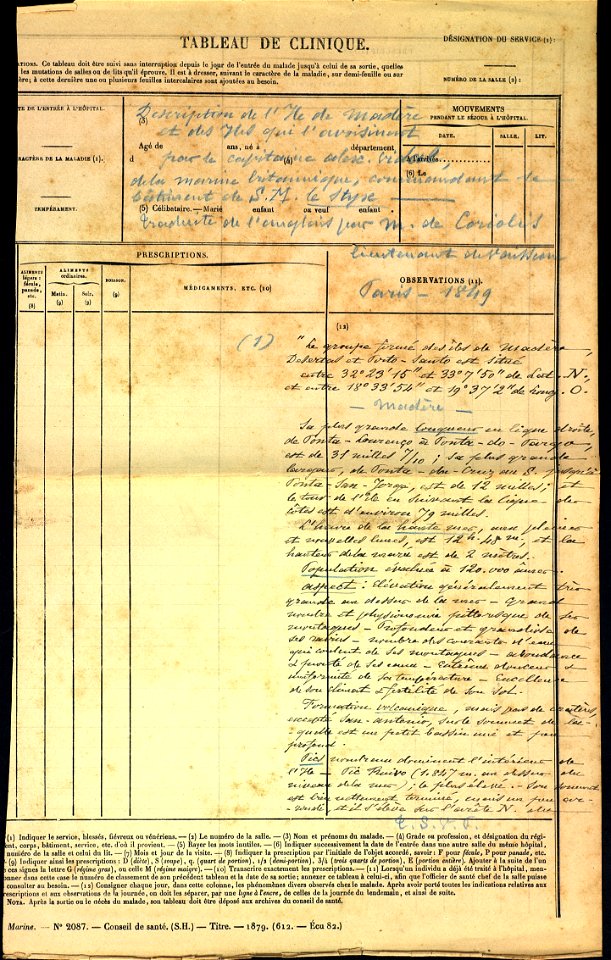 TABLEAU DE CLINIQUE.
DÉSIGNATION DU SERVICE (1):
ATIONS. Ce tableau doit être suivi sans interruption depuis le jour de l'entrée du malade jusqu'à celui de sa sortie, quelles
les mutations de salles ou de lits qu'il éprouve. Il est à dresser, suivant le caractère de la maladie, sur demi-feuille ou sur
ère; à cette dernière une ou plusieurs feuilles intercalaires sont ajoutées au besoin.
NUMÉRO DE LA SALLE (2):
TE DE L'ENTRÉE À L'HÔPITAL.
(3)
Description de l'Ile de Madère
et des Iles qui l'avoisinent
Agé de ans, né à département
d (4)
pour le capitaine alex. Vidal
de la marine britannique, commandant le
bâtiment de S. M. le Styx
(5) Célibataire. — Marié enfant ou veuf enfant .
traduite de l'anglais par M. de Coriolis
lieutenant de vaisseau
Paris - 1849
MOUVEMENTS
PENDANT LE SÉJOUR À L'HÔPITAL.
DATE. SALLE. LIT.
À l'arrivée
(6) Le
ARACTÈRE DE LA MALADIE (1).
TEMPÉRAMENT.
PRESCRIPTIONS.
ALIMENTS légers: fécule, panade, etc. (8)
ALIMENTS ordinaires.
Matin. (9)
Soir. (9)
BOISSON. (9)
MÉDICAMENTS, ETC. (10)
OBSERVATIONS (11).
(12)
(1)
"Le groupe formé des îles de Madère,
Desertas et Porto-Santo est situé
entre 32° 23' 15" et 33° 7' 50" de Lat. N.,
et entre 18° 33' 54" et 19° 37' 2" de Long. O.
— Madère —
Sa plus grande longueur en ligne droite,
de Ponta-Lourenço à Ponta-do-Pargo,
est de 31 milles 7/10; sa plus grande
largeur, de Ponta-da-Cruz au S. jusqu'à
Ponta-San-Jorge, est de 12 milles; et
le tour de l'île en suivant la ligne des
côtes est d'environ 79 milles.
L'heure de la haute mer, aux pleines
et nouvelles lunes, est 12 h. 48 m., et la
hauteur de la marée est de 2 mètres.
Population évaluée à 120.000 âmes.
aspect: Elévation généralement très
grande au dessus de la mer - Grand
nombre et physionomie pittoresque de ses
montagnes - Profondeur et grandiose de
ses ravins - nombre des courants d'eau
qui coulent de ses montagnes - abondance
et pureté de ses eaux - Extrême douceur et
uniformité de sa température - Excellence
de son climat et fertilité de son sol.
Formation volcanique, mais pas de cratères,
excepté San-antonio, sur le sommet de la-
quelle est un petit bassin uni et peu
profond.
Pics nombreux dominent l'intérieur de
l'Ile - Pic Ruivo (1.847 m. au dessus du
niveau de la mer); le plus élevé. - Son sommet
est très nettement terminé, mais un peu ar-
rondi et il s'élève sur l'arête N. d'un
T. S. V. P.
(1) Indiquer le service, blessés, fiévreux ou vénériens. — (2) Le numéro de la salle. — (3) Nom et prénoms du malade. — (4) Grade ou profession, et désignation du régi-
ent, corps, bâtiment, service, etc. d'où il provient. — (5) Rayer les mots inutiles. — (6) Indiquer successivement la date de l'entrée dans une autre salle du même hôpital,
numéro de la salle et celui du lit. — (7) Mois et jour de la visite. — (8) Indiquer la prescription par l'initiale de l'objet accordé, savoir: F pour fécule, P pour panade, etc.
(9) Indiquer ainsi les prescriptions: D (diète), S (soupe), q. (quart de portion), 1/2 (demi-portion), 3/4 (trois quarts de portion), E (portion entière). Ajouter à la suite de l'un
ces signes la lettre G (régime gras), ou celle M (régime maigre). — (10) Transcrire exactement les prescriptions. — (11) Lorsqu'un individu a déjà été traité à l'hôpital, men-
onner dans cette case le numéro de classement de son précédent tableau et la date de sa sortie; annexer ce tableau à celui-ci, afin que l'officier de santé chef de la salle puisse
consulter au besoin. — (12) Consigner chaque jour, dans cette colonne, les phénomènes divers observés chez le malade. Après avoir porté toutes les indications relatives aux
rescriptions et aux observations de la journée, on doit les séparer, par une ligne d'encre, de celles de la journée du lendemain, et ainsi de suite.
NOTA. Après la sortie ou le décès du malade, son tableau doit être déposé aux archives du conseil de santé.
Marine. — N° 2087. — Conseil de santé. (S.H.) — Titre. — 1879. (612. — Écu 82.)